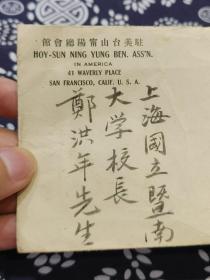 駐美台山甯陽總會館
HOY-SUN NING YUNG BEN. ASS'N.
IN AMERICA
41 WAVERLY PLACE
SAN FRANCISCO, CALIF. U. S. A.
上海國立暨南
大学校長
鄭洪年先生